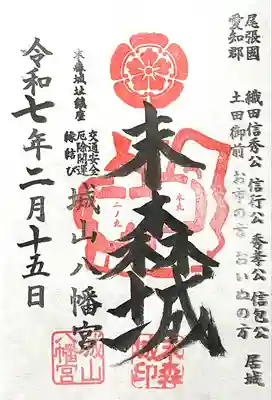 尾張國
愛知郡
織田信秀公 信行公 秀孝公 信包公 居城
土田御前 お市の方 おいぬの方
末森城
本丸
二ノ丸
末森城印
末森城址鎮座
交通安全
厄除開運
縁結び
城山八幡宮
城山八幡宮
令和七年二月十五日